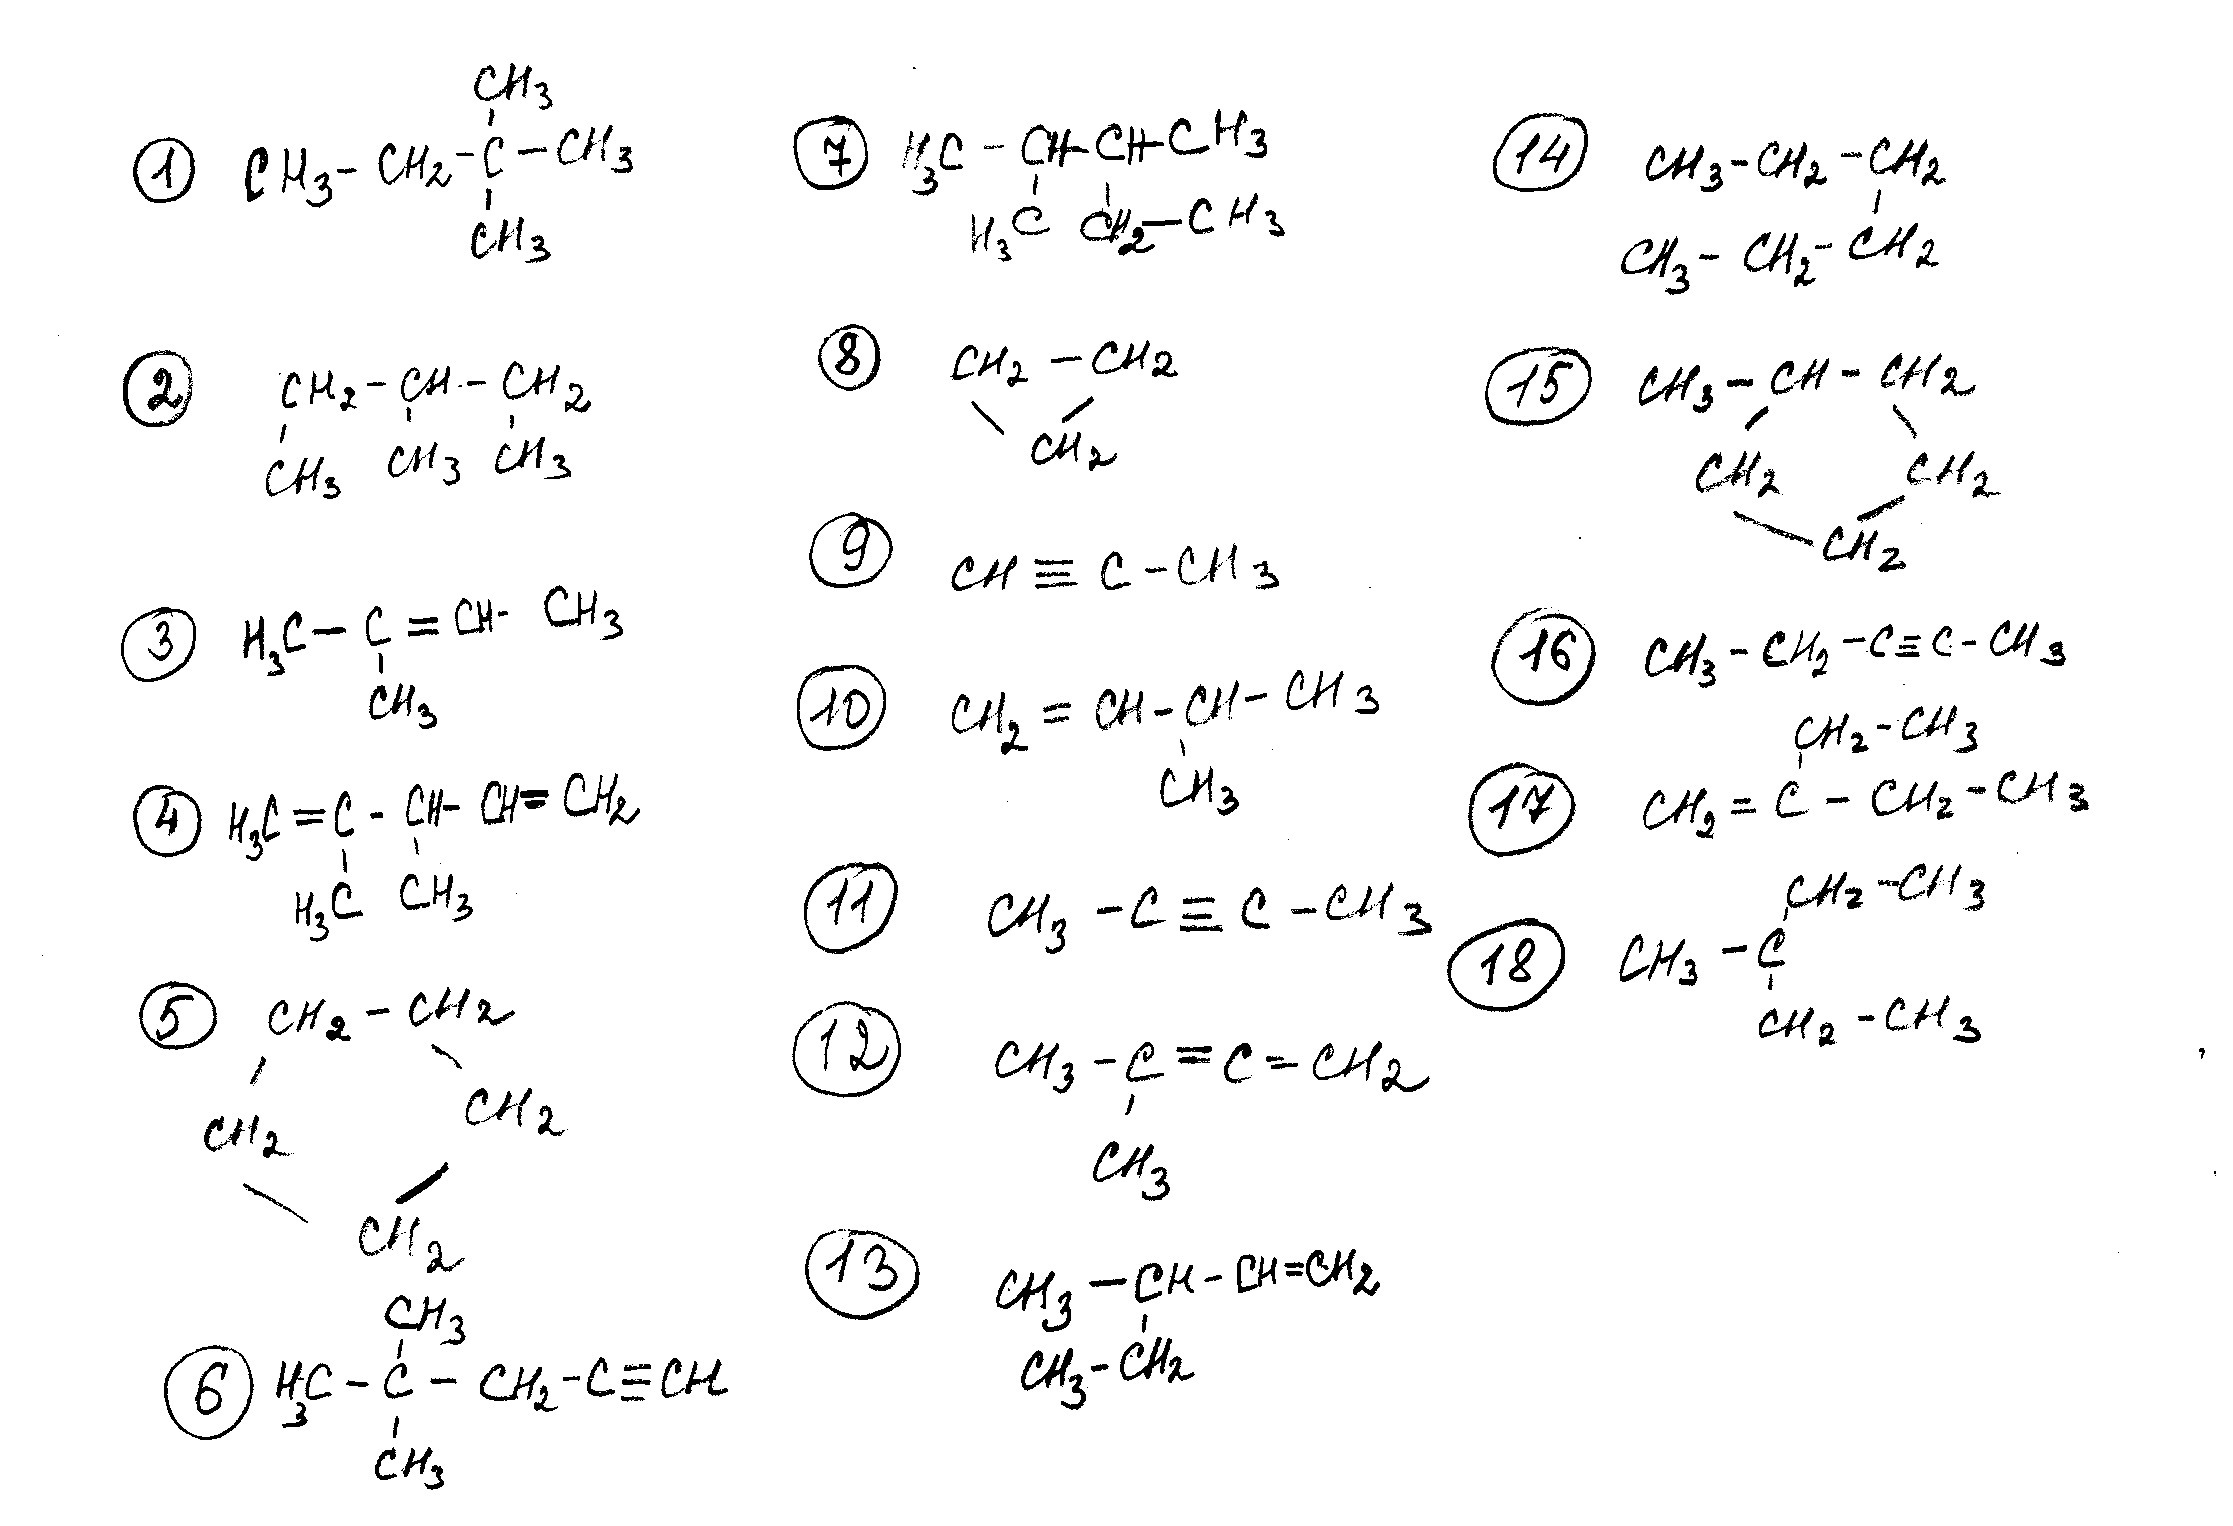 CH3
① CH3-CH2-C-CH3
CH3
② CH2-CH-CH2
CH3 CH3 CH3
③ H3C-C=CH-CH3
CH3
④ H3C=C-CH-CH=CH2
H3C CH3
⑤ CH2-CH2
CH2 CH2
CH2
CH3
⑥ H3C-C-CH2-C≡CH
CH3
⑦ H3C-CH-CH-CH3
H3C CH2-CH3
⑧ CH2-CH2
CH2
⑨ CH≡C-CH3
⑩ CH2=CH-CH-CH3
CH3
⑪ CH3-C≡C-CH3
⑫ CH3-C=C=CH2
CH3
⑬ CH3-CH-CH=CH2
CH3-CH2
⑭ CH3-CH2-CH2
CH3-CH2-CH2
⑮ CH3-CH-CH2
CH2 CH2
CH2
⑯ CH3-CH2-C≡C-CH3
CH2-CH3
⑰ CH2=C-CH2-CH3
CH2-CH3
⑱ CH3-C
CH2-CH3